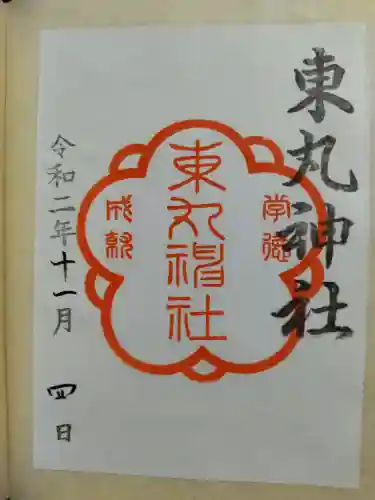 東丸神社
学徳
東丸神社
成就
令和二年十一月四日